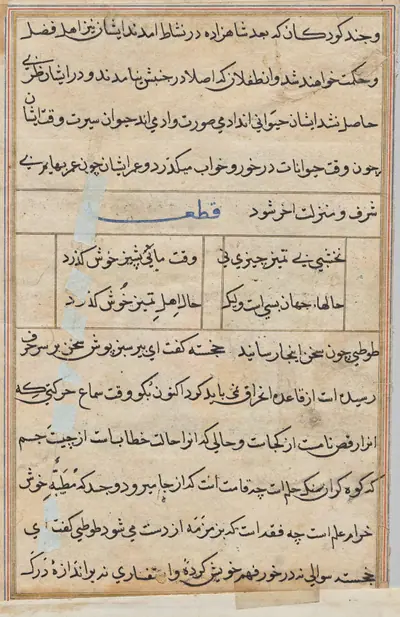 و چند کودکان که بعد شاهزاده در نشاط امدند ایشان نیز اهل فضل
و حکمت خواهند شد و انطفلان که اصلا در جنبش نیامدند و در ایشان طربی
حاصل نشد ایشان حیوانی اند ادمی صورت و ادمی اند حیوان سیرت وقت ایشان
چون وقت حیوانات در خور و خواب میکذرد و عمر ایشان چون عمر بهایم بی
شرف و منزلت اخر شود
قطعه
نخشبی بی تمیز چیزی نی
وقت مائی تمیز خوش کذرد
حالها، جهان بسی است ولیک
حال اهل تمیز خوش کذرد
طوطی چون سخن اینجا رسانید خجسته کفت ای پیر سبز پوش سخن بر سر حرف
رسیده است از قاعده انحراق نمی باید کرد اکنون بکو وقت سماع حرکتی که
انرا رقص نامست از کجاست و حالی که انوا حالت خطابست از چیست جسم
که کوه کران سنک حلم است چه قامت است که از جا میرود و جد که مطیه خوش
خرام علم است چه فقد است که بزمزمه از دست می شود طوطی کفت ای
خجسته سوالی نه در خور فهم خویش کرده و استفساری نه بر اندازه درک